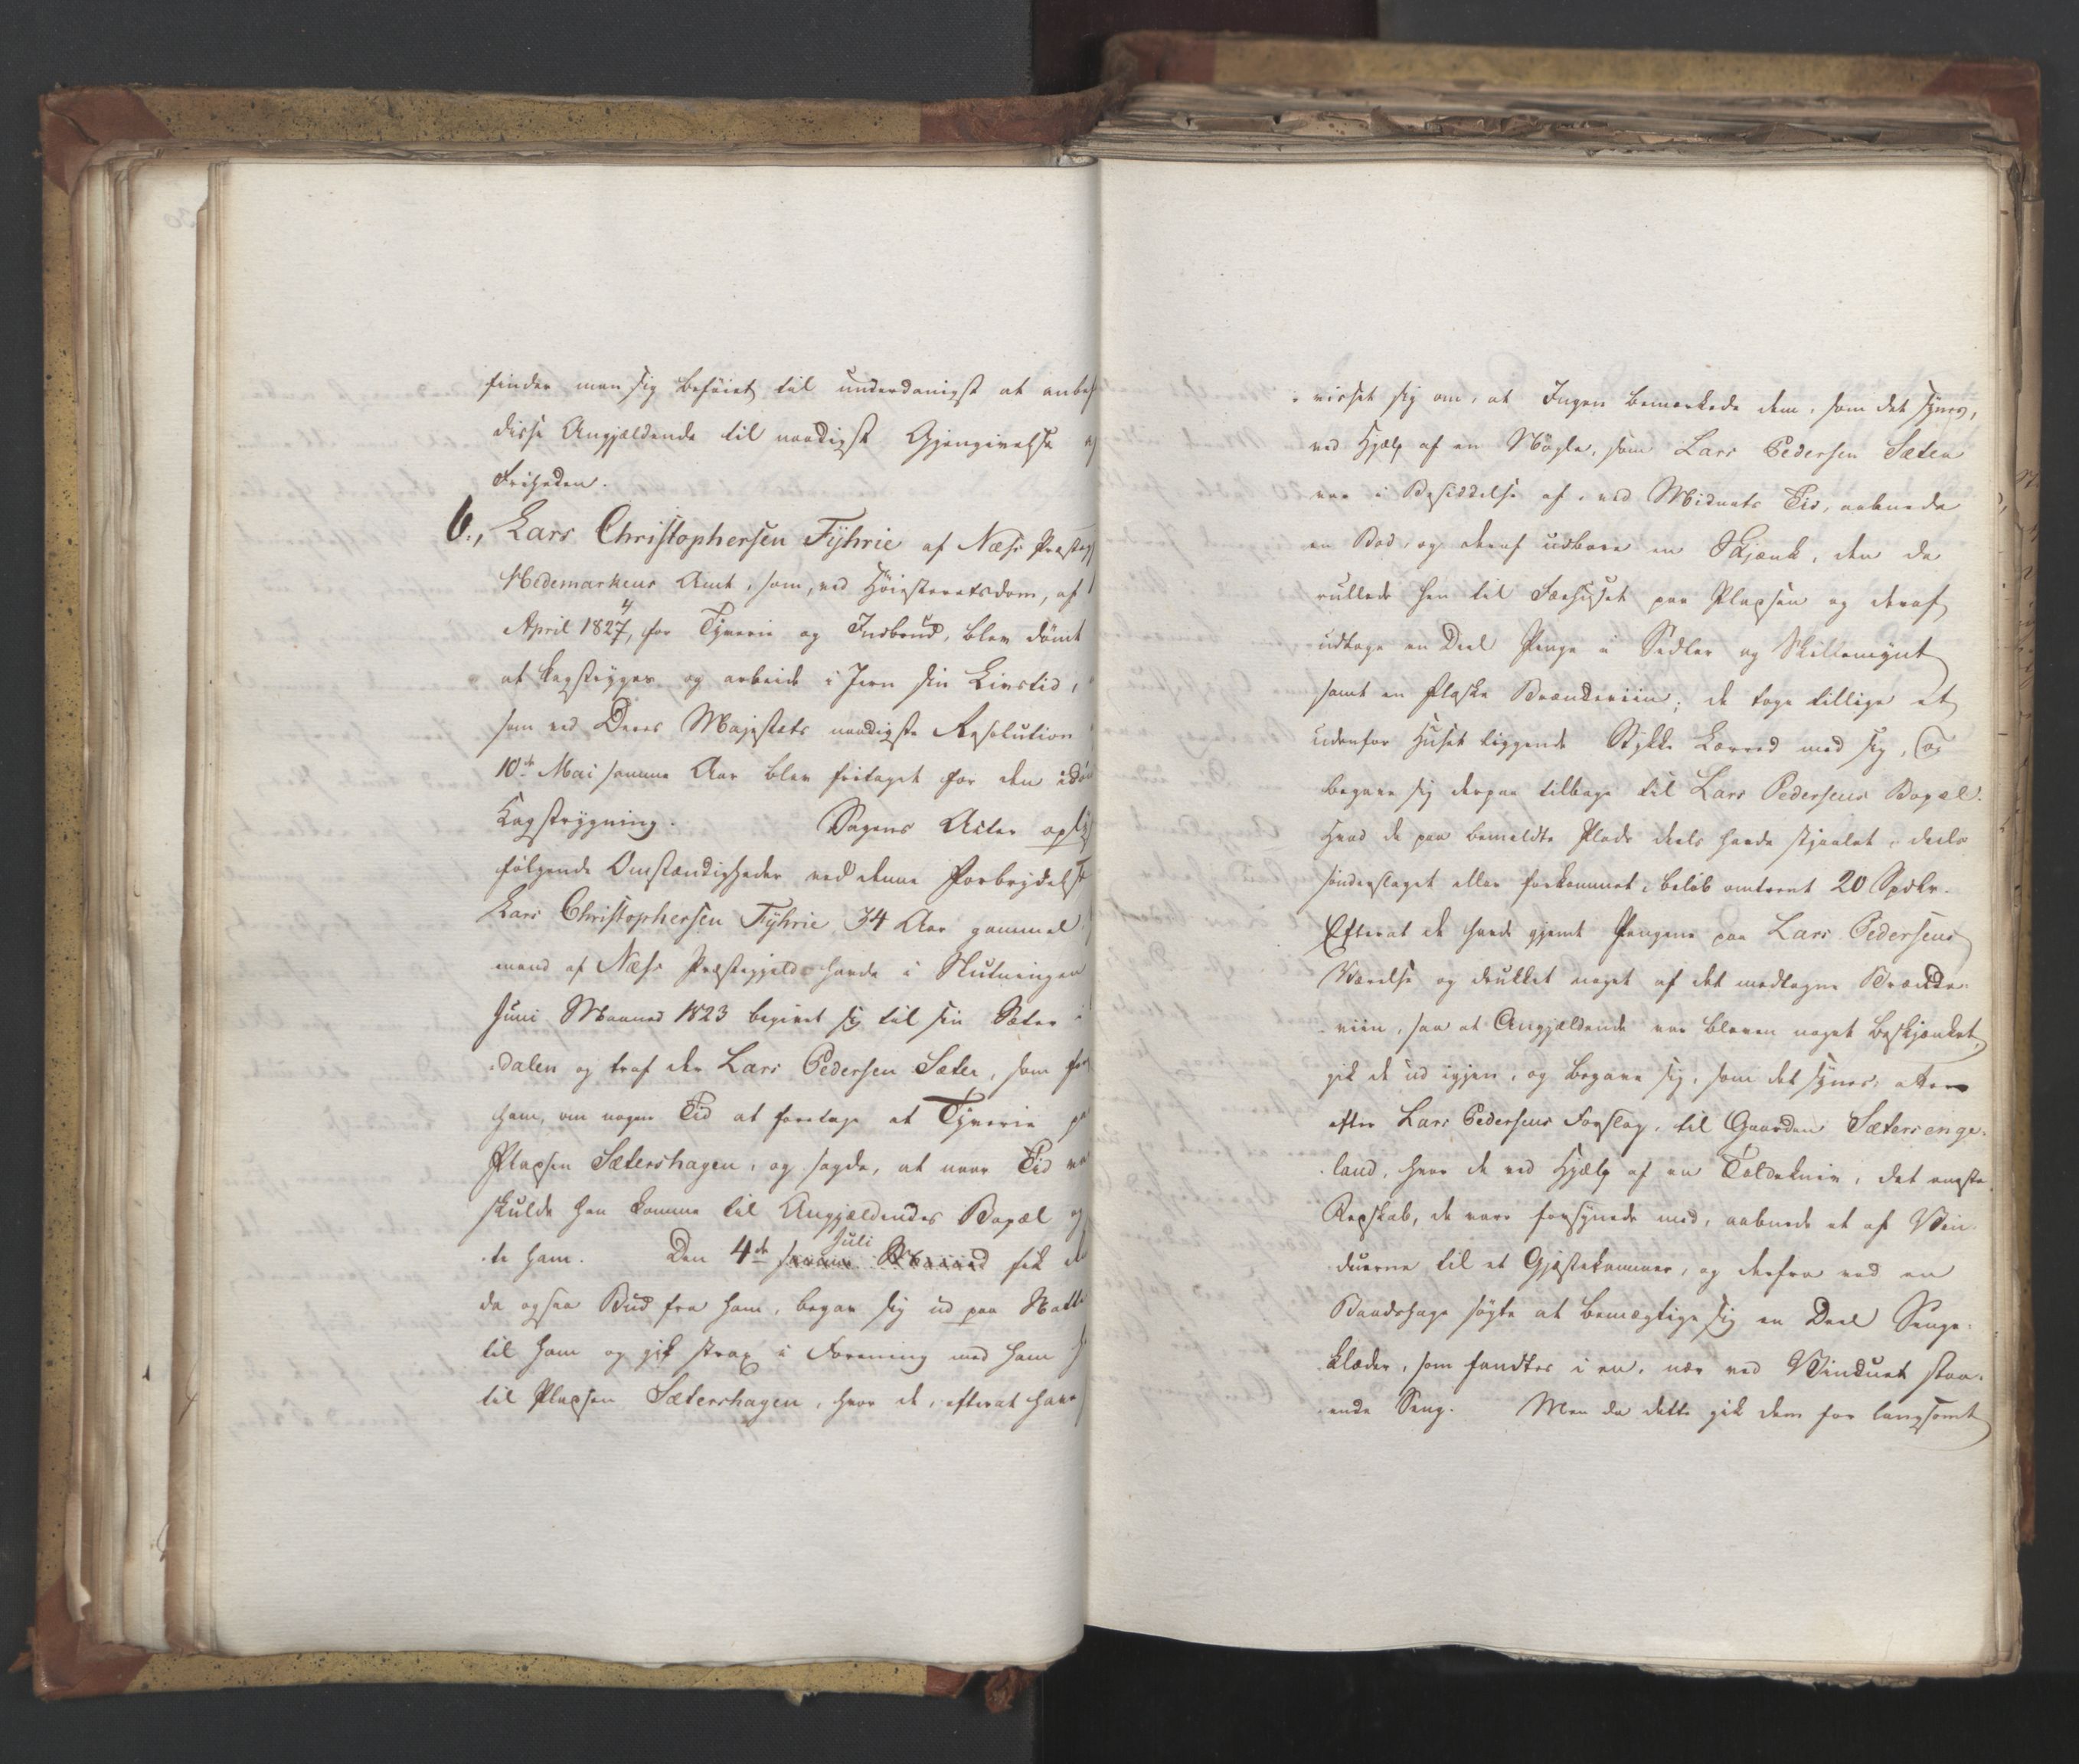 finder man sig beföiet til underdanigst at anbef
disse Angjældende til naadigst Gjengivelse
Friheden.
6., Lars Christophersen Fÿhrie af Næss Præste
Hedemarkens Amt, som, ved Höiesteretsdom, af
April 1824, for Tyverie og Indbrud, blev dömt
at kagstryges og arbeide i Jern sin Livstid,
som ved Deres Majestæts naadigste Resolution
10de Mai samme Aar blev fritaget for den idöm
Kagstrygning. Sagens Acter oplÿs
fölgende Omstændigheder ved denne Forbrydelse
Lars Christophersen Fÿhrie 34 Aar gammel
mand af Næss Præstegjeld havde i Slutningen
Juni Maaned 1823 begivet sig til sin Sæter i
dalen og traf der Lars Pedersen Sæter, som for
ham, om nogen Tid at foretage et Tyverie pa
Pladsen Sætershagen, og sagde, at naar Tid va
skulde han komme til Angjældendes Bopæl og
te ham. Den 4de samme Maaned Juli fik d
da ogsaa Bud fra ham, begav sig ud paa Natte
til ham og gik strax i Forening med ham h
til Pladsen Sætershagen, hvor de, efterat have
visset sig om, at Ingen bemærkede dem, som det synes,
ved Hjælp af en Nögle, som Lars Pedersen Sæter
var i Besiddelse af, ved Midnats Tid, aabnede
en Bod, og deraf udbare en Skjænk, den de
rullede hen til Fæehuset paa Pladsen og deraf
udtoge en Deel Penge i Sedler og Skillemynt
samt en Flaske Brændeviin; de toge tillige et
udenfor Huset liggende Stykke Lærred med sig, og
begave sig derpaa tilbage til Lars Pedersens Bopæl.
Hvad de paa bemeldte Plads deels havde stjaalet, deels
sönderslaget eller forkommet, beløb omtrent 20 Spdlr.
Efterat de havde gjemt Pengene paa Lars Pedersens
Værelse og drukket noget af det medtagne Brænde-
viin, saa at Angjældende var bleven noget beskjænket,
gik de ud igjen, og begave sig, som det synes, atter
efter Lars Pedersens Forslag, til Gaarden Sætersenge-
land, hvor de ved Hjælp af en Toldekniv, det eneste
Redskab, de vare forsynede med, aabnede et af Vin-
duerne til et Gjæstekammer, og derfra ved en
Baadshage søgte at bemægtige sig en Deel Senge-
klæder, som fandtes i en, nær ved Vinduet staa-
ende Seng. Men da dette gik dem for langsomt